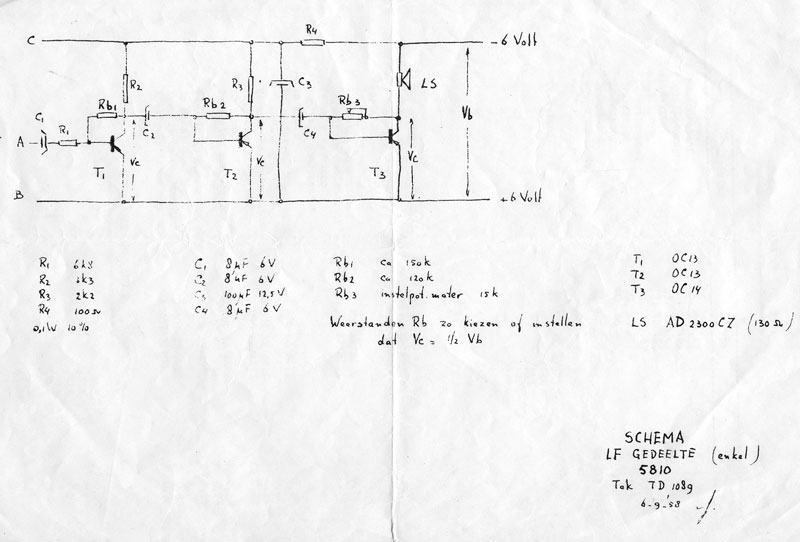 C
R4
- 6 Volt
R2
R3
C3
LS
Rb1
Rb2
Rb3
Vb
C1
R1
C2
C4
A
Vc
Vc
Vc
T1
T2
T3
B
+ 6 Volt
R1 6k8
R2
R3 2k2
R4 100 Ω
0,1W 10%
C1 8µF 6V
C2 8µF 6V
C3 100µF 12,5V
C4 8µF 6V
Rb1 ca 150k
Rb2 ca 120k
Rb3 instelpot.mater 15k
Weerstanden Rb zo kiezen of instellen
dat Vc = 1/2 Vb
T1 OC13
T2 OC13
T3 OC14
LS AD 2300 CZ (130 Ω)
SCHEMA
LF GEDEELTE (enkel)
5810
Tek TD 1089
6-9-'58